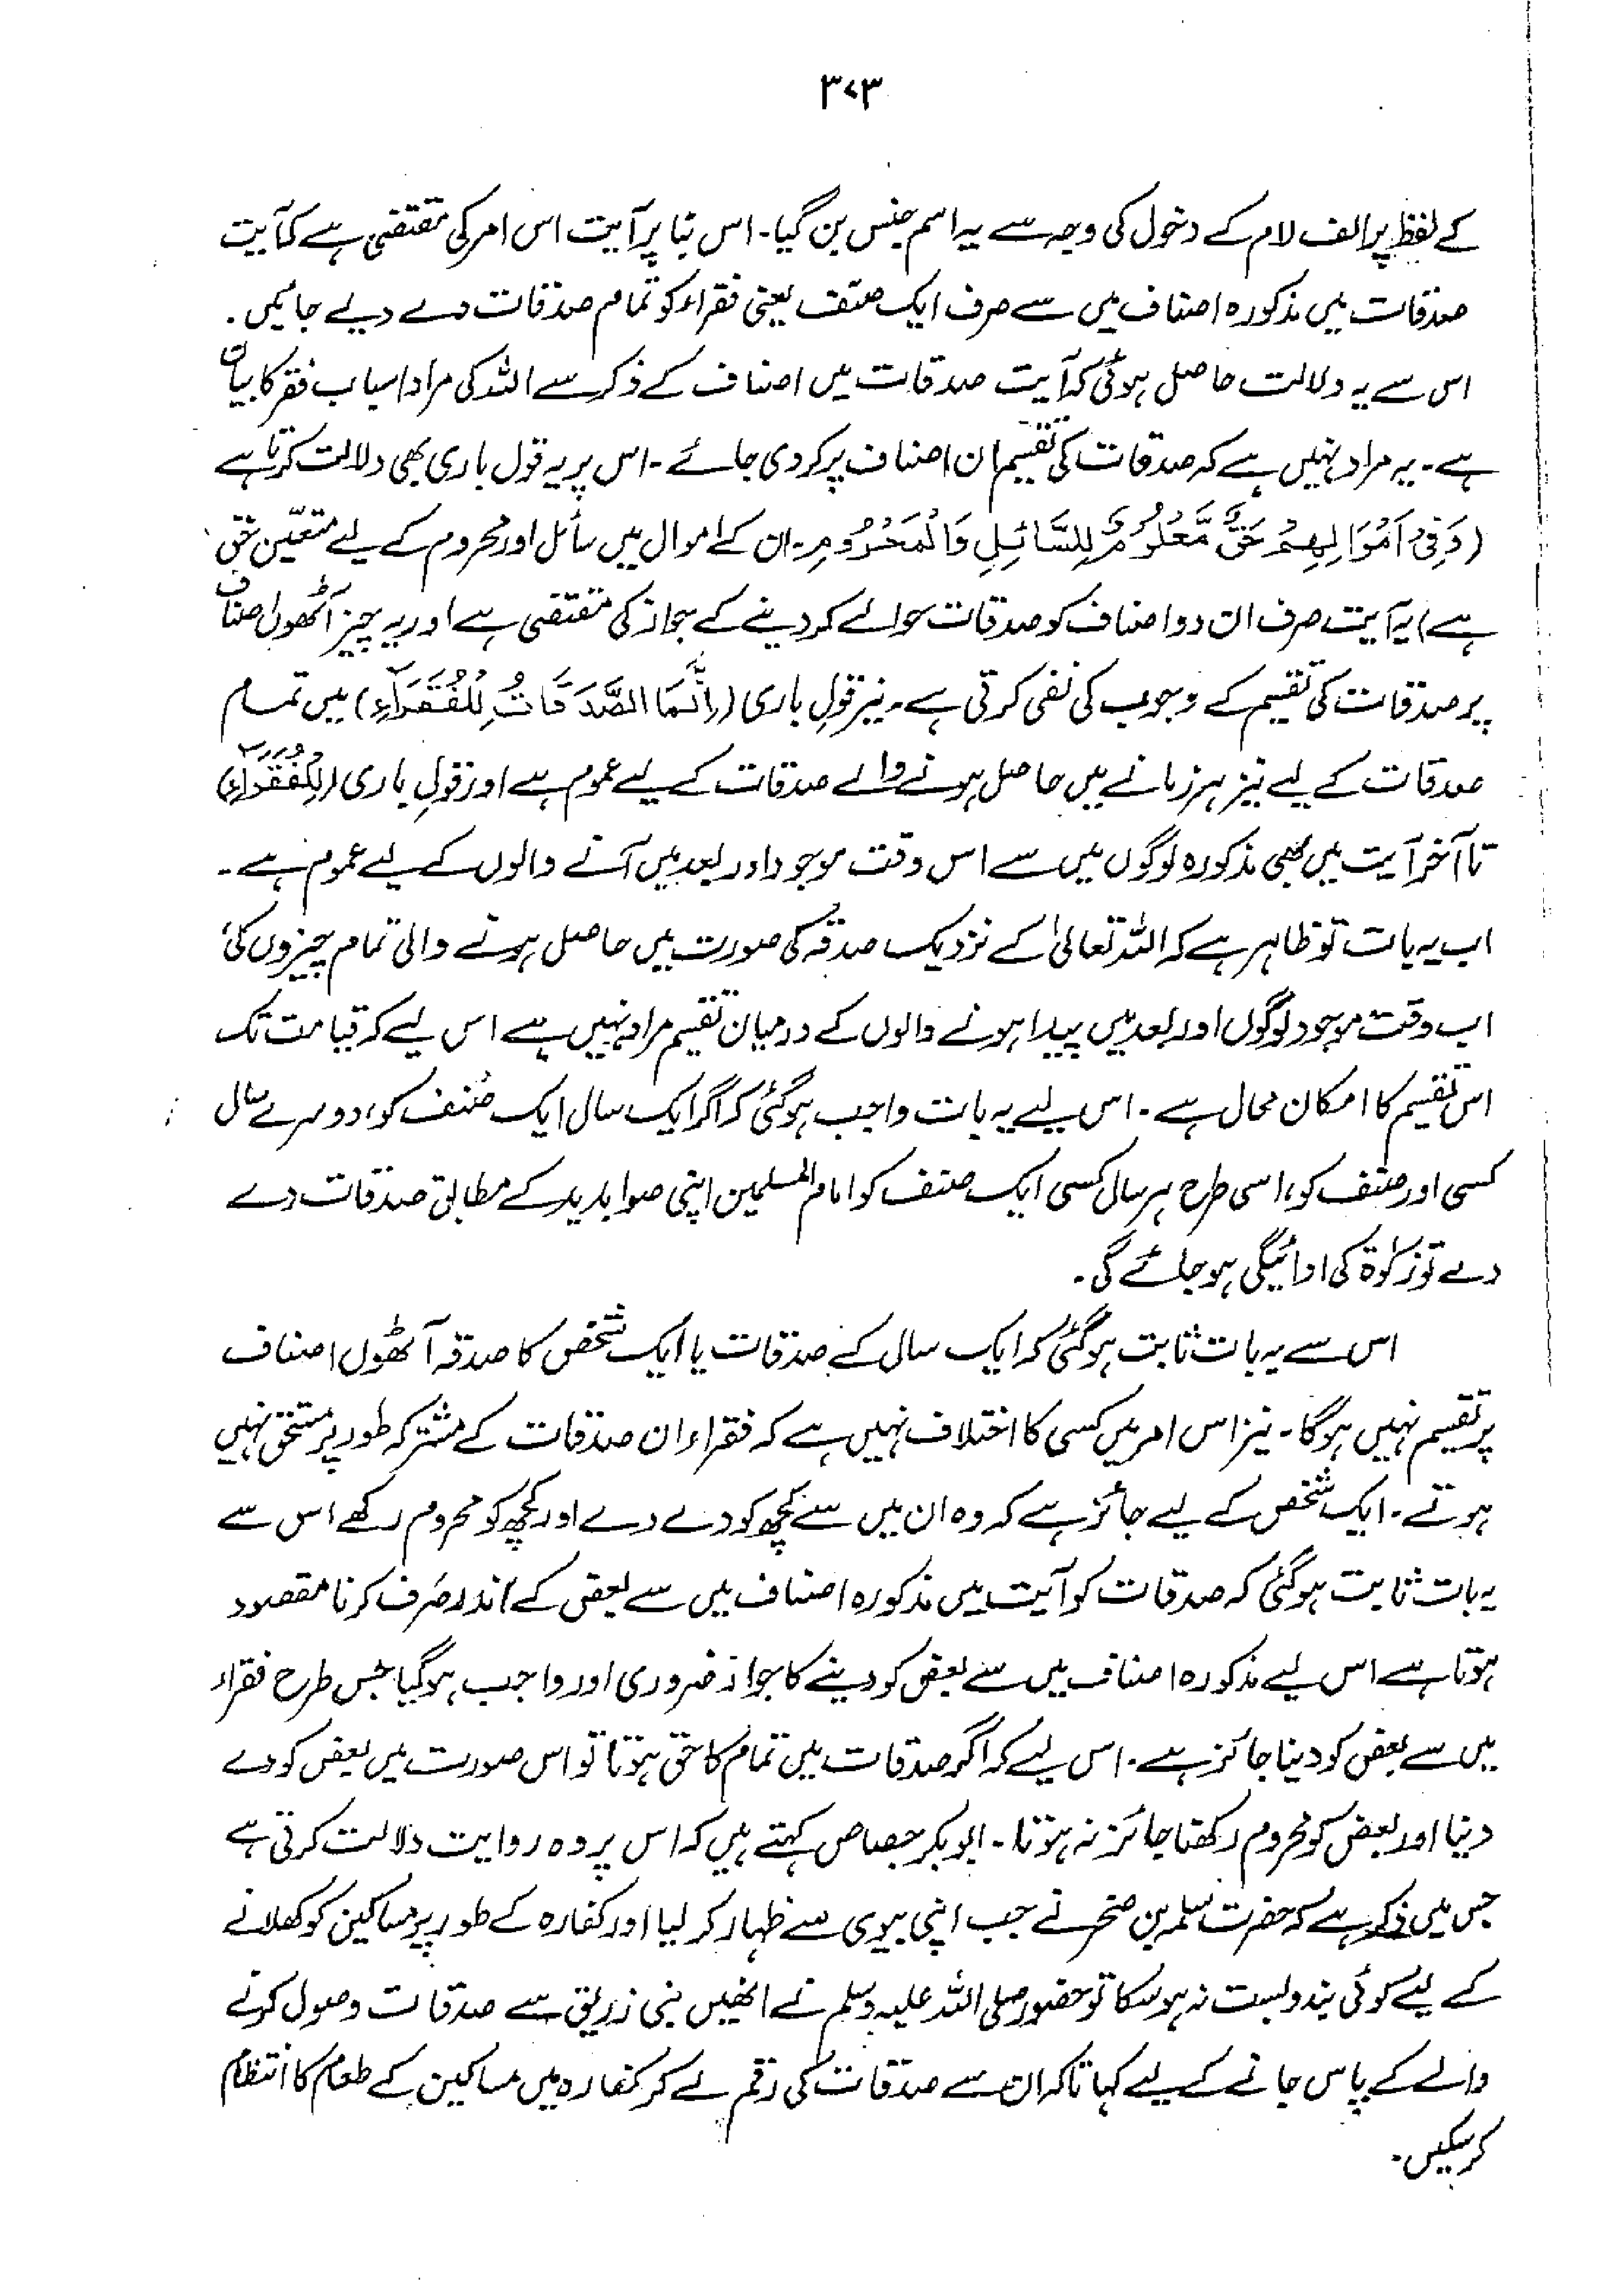 ۳۷۳
کے لفظ پر الف لام کے دخول کی وجہ سے یہ اسم جنس بن گیا۔ اس بنا پر آیت اس امر کی مقتضی ہے کہ آیت
صدقات میں مذکورہ اصناف میں سے صرف ایک صنف یعنی فقراء کو تمام صدقات دے دیے جائیں۔
اس سے یہ دلالت حاصل ہوئی کہ آیت صدقات میں اصناف کے ذکر سے اللہ کی مراد اسباب فقر کا بیان
ہے۔ یہ مراد نہیں ہے کہ صدقات کی تقسیم ان اصناف پر کر دی جائے۔ اس پر یہ قول باری بھی دلالت کرتا ہے
(وَفِیْ اَمْوَالِهِمْ حَقٌّ مَّعْلُوْمٌ لِّلسَّائِلِ وَالْمَحْرُوْمِ۔ ان کے اموال میں سائل اور محروم کے لیے متعیّن حق
ہے) یہ آیت صرف ان دو اصناف کو صدقات حوالے کر دینے کے جواز کی مقتضی ہے اور یہ چیز آٹھوں اصناف
پر صدقات کی تقسیم کے وجوب کی نفی کرتی ہے۔ نیز قولِ باری (اِنَّمَا الصَّدَقَاتُ لِلْفُقَرَآءِ) میں تمام
صدقات کے لیے نیز ہر زمانے میں حاصل ہونے والے صدقات کے لیے عموم ہے اور قولِ باری (لِلْفُقَرَآءِ)
تا آخر آیت میں بھی مذکورہ لوگوں میں سے اس وقت موجود اور بعد میں آنے والوں کے لیے عموم ہے۔
اب یہ بات تو ظاہر ہے کہ اللہ تعالیٰ کے نزدیک صدقہ کی صورت میں حاصل ہونے والی تمام چیزوں کی
اب وقت موجود لوگوں اور بعد میں پیدا ہونے والوں کے درمیان تقسیم مراد نہیں ہے اس لیے کہ قیامت تک
اس تقسیم کا امکان محال ہے۔ اس لیے یہ بات واجب ہوگئی کہ اگر ایک سال ایک صنف کو، دوسرے سال
کسی اور صنف کو، اسی طرح ہر سال کسی ایک صنف کو امام المسلمین اپنی صوابدید کے مطابق صدقات دے
دے تو زکوٰۃ کی ادائیگی ہو جائے گی۔
اس سے یہ بات ثابت ہوگئی کہ ایک سال کے صدقات یا ایک شخص کا صدقہ آٹھوں اصناف
پر تقسیم نہیں ہوگا۔ نیز اس امر میں کسی کا اختلاف نہیں ہے کہ فقراء ان صدقات کے مشترکہ طور پر مستحق نہیں
ہوتے۔ ایک شخص کے لیے جائز ہے کہ وہ ان میں سے کچھ کو دے دے اور کچھ کو محروم رکھے اس سے
یہ بات ثابت ہوگئی کہ صدقات کو آیت میں مذکورہ اصناف میں سے بعض کے اندر صَرف کرنا مقصود
ہوتا ہے اس لیے مذکورہ اصناف میں سے بعض کو دینے کا جواز ضروری اور واجب ہوگیا جس طرح فقراء
میں سے بعض کو دینا جائز ہے۔ اس لیے کہ اگر صدقات میں تمام کا حق ہوتا تو اس صورت میں بعض کو دے
دینا اور بعض کو محروم رکھنا جائز نہ ہوتا۔ ابوبکر جصاص کہتے ہیں کہ اس پر وہ روایت دلالت کرتی ہے
جس میں ذکر ہے کہ حضرت سلمہ بن صخر نے جب اپنی بیوی سے ظہار کر لیا اور کفارہ کے طور پر مساکین کو کھلانے
کے لیے کوئی بندوبست نہ ہو سکا تو حضور صلی اللہ علیہ وسلم نے انھیں بنی زریق سے صدقات وصول کرنے
والے کے پاس جانے کے لیے کہا تاکہ ان سے صدقات کی رقم لے کر کفارہ میں مساکین کے طعام کا انتظام
کر سکیں۔